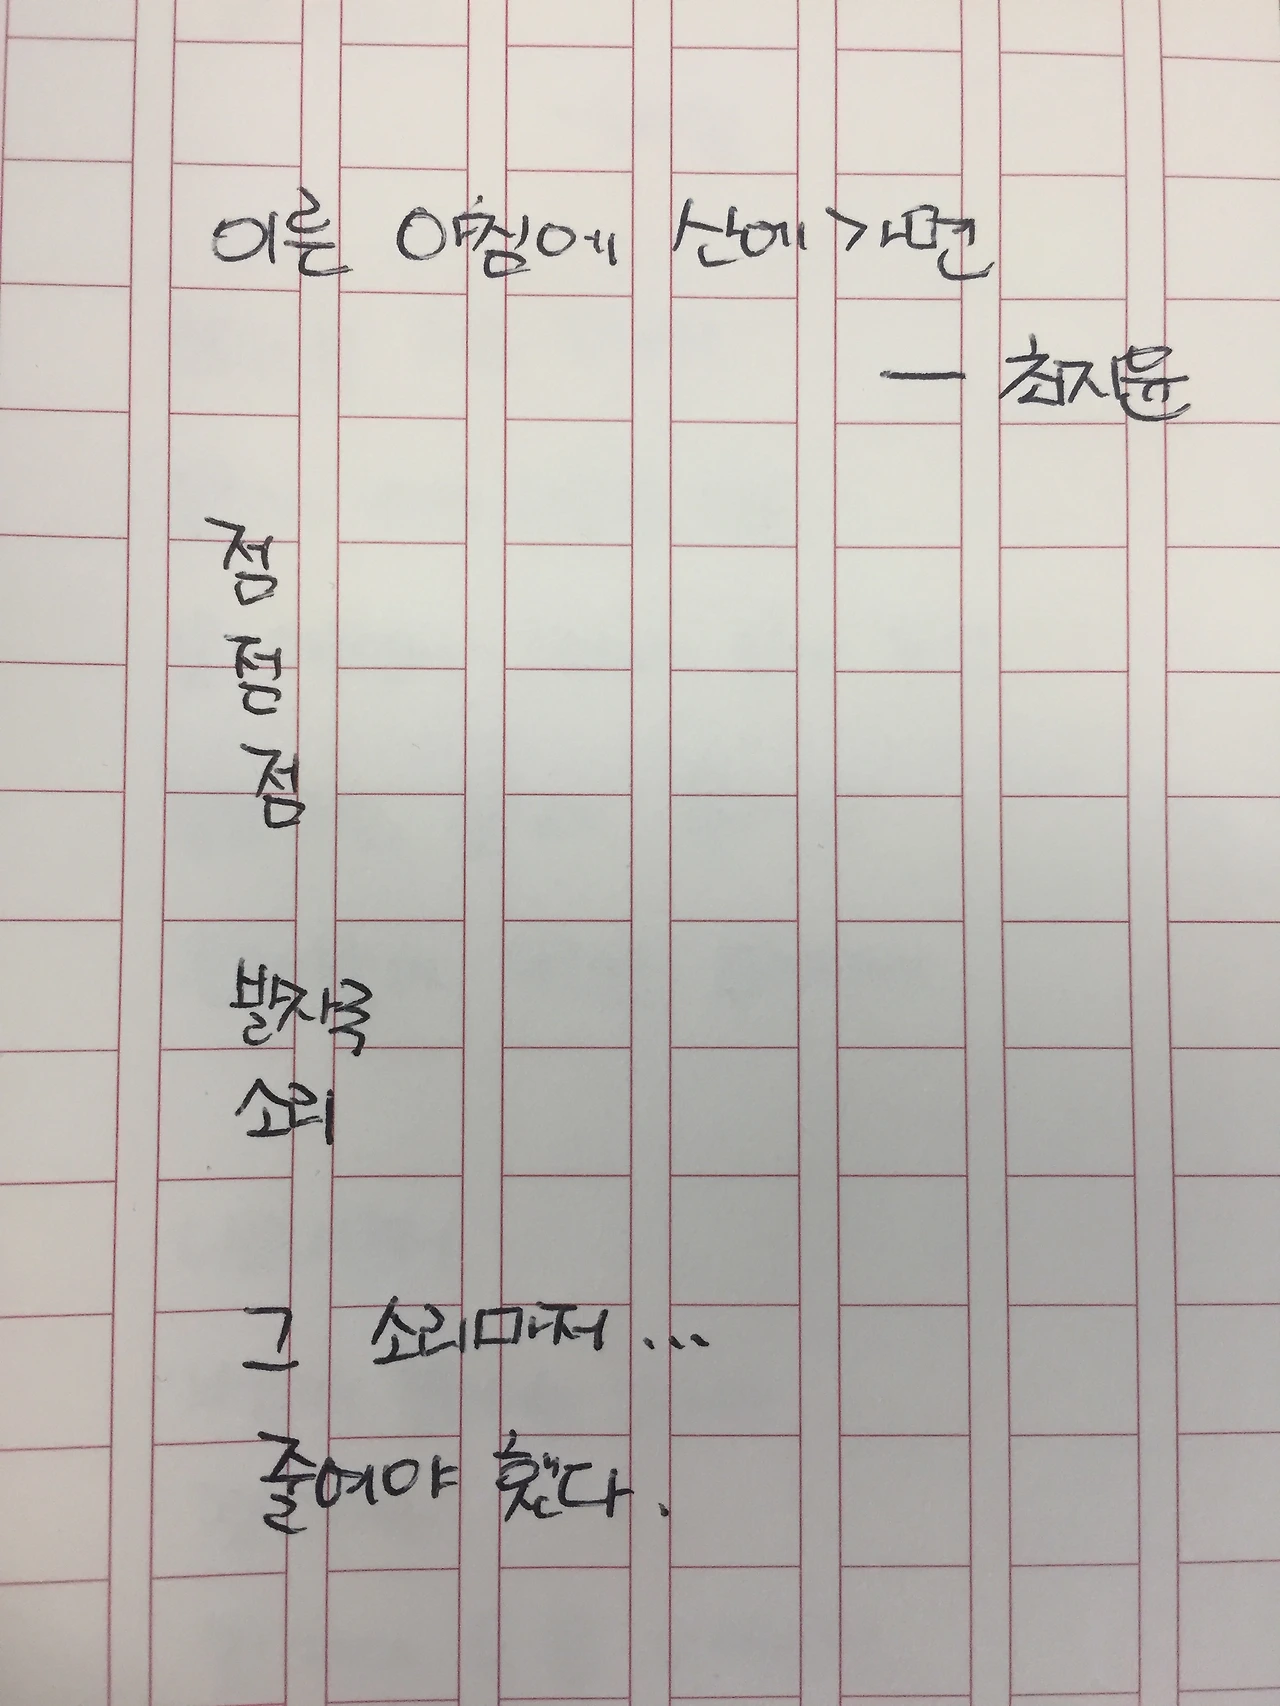 이른 아침에 산에 가면
— 최지윤
점
점
점
발자국
소리
그 소리마저...
줄여야 했다.